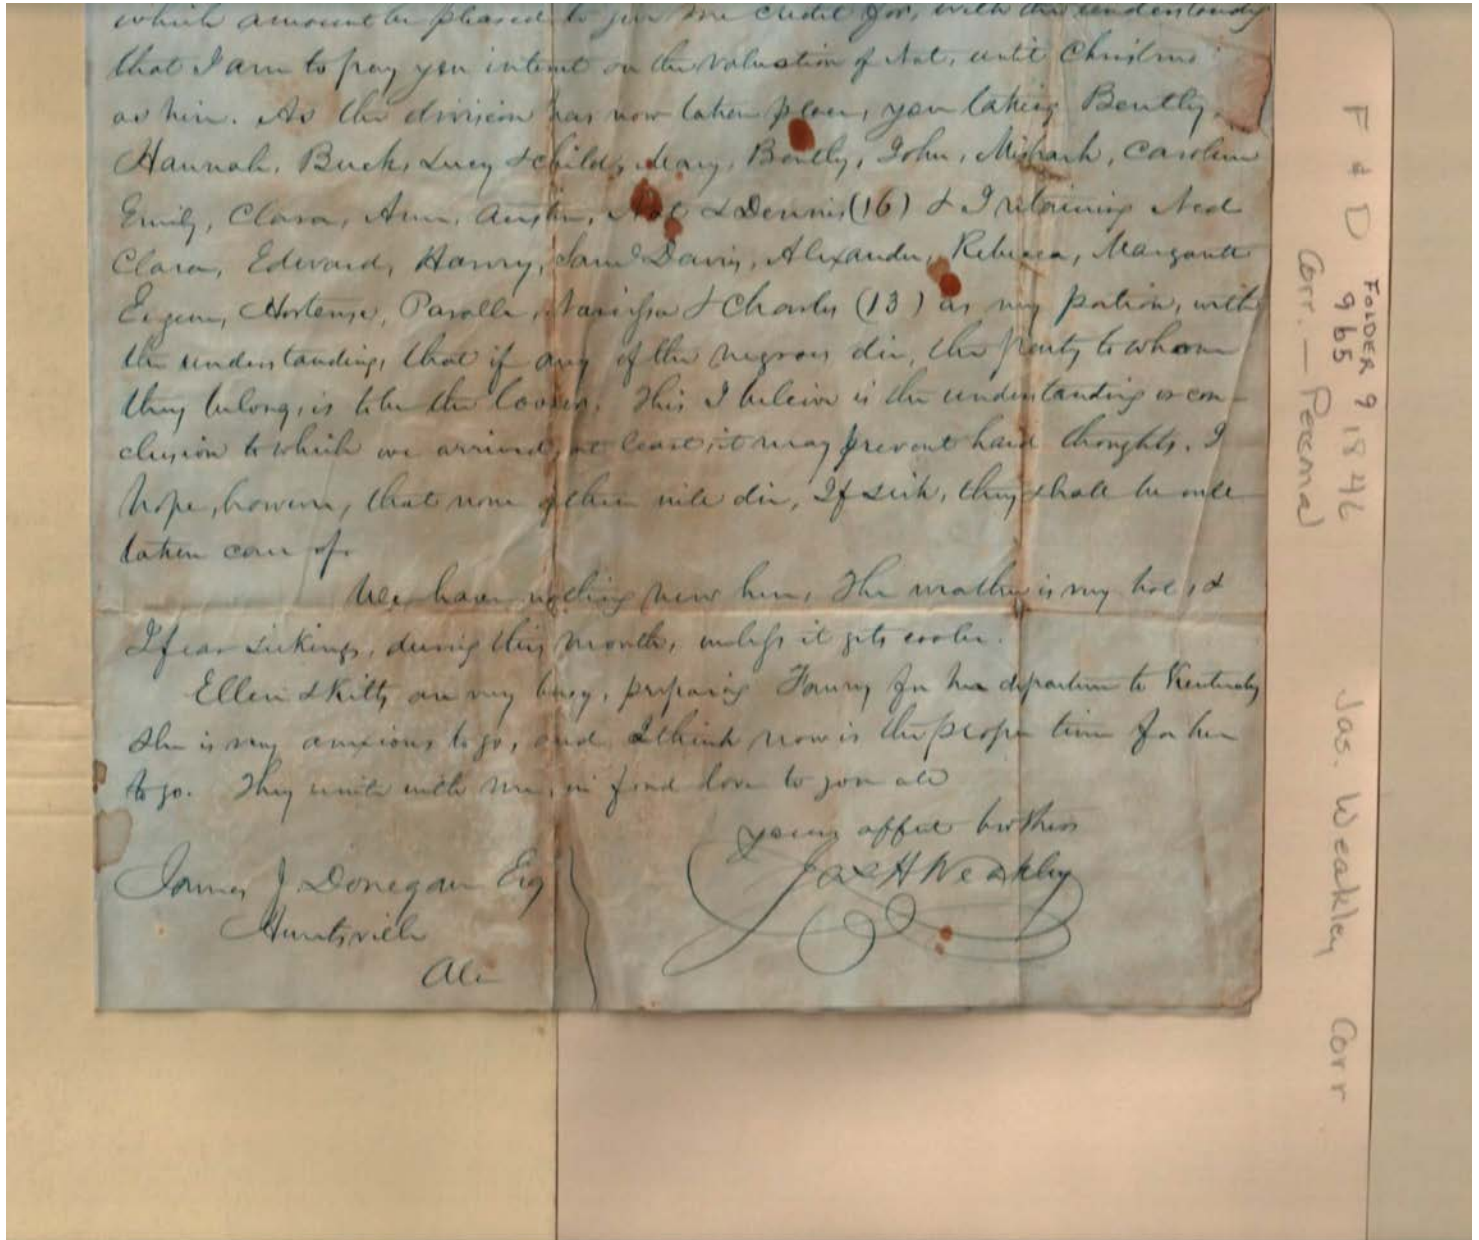 which amount be pleased to give me credit for, with the understanding
that I am to pay you interest on the valuation of Nat, until Christmas
as hire. As the division has now taken place, you taking Bently
Hannah, Buck, Lucy & child, Mary, Bently, John, Mishack, Caroline
Emily, Clara, Ann, Austin, Nat & Dennis (16) & I retaining Ned
Clara, Edward, Harvy, Sam Davis, Alexander, Rebecca, Margarett
Eugene, Hortense, Narcissa & Charles (13) as my portion, with
the understanding, that if any of the negroes die, the party to whom
they belong, is to be the looser. This I beleive is the understanding or con-
clusion to which we arrived, at least, it may prevent hard thoughts. I
hope, however, that none of them will die, If sick, they shall be well
taken care of.
We have nothing new here, The weather is very hot, &
I fear sickness, during this month, unless it gets cooler.
Ellen & Kitty are very busy, preparing Fanny for her departure to Kentucky
She is very anxious to go, and I think now is the proper time for her
to go. They unite with me, in fond love to you all
yours affect brother
Jas H Weakley
James J. Donegan Esq
Huntsville
Ala
F & D
FOLDER 9 1846
965
Corr. — Personal
Jas. Weakley Corr